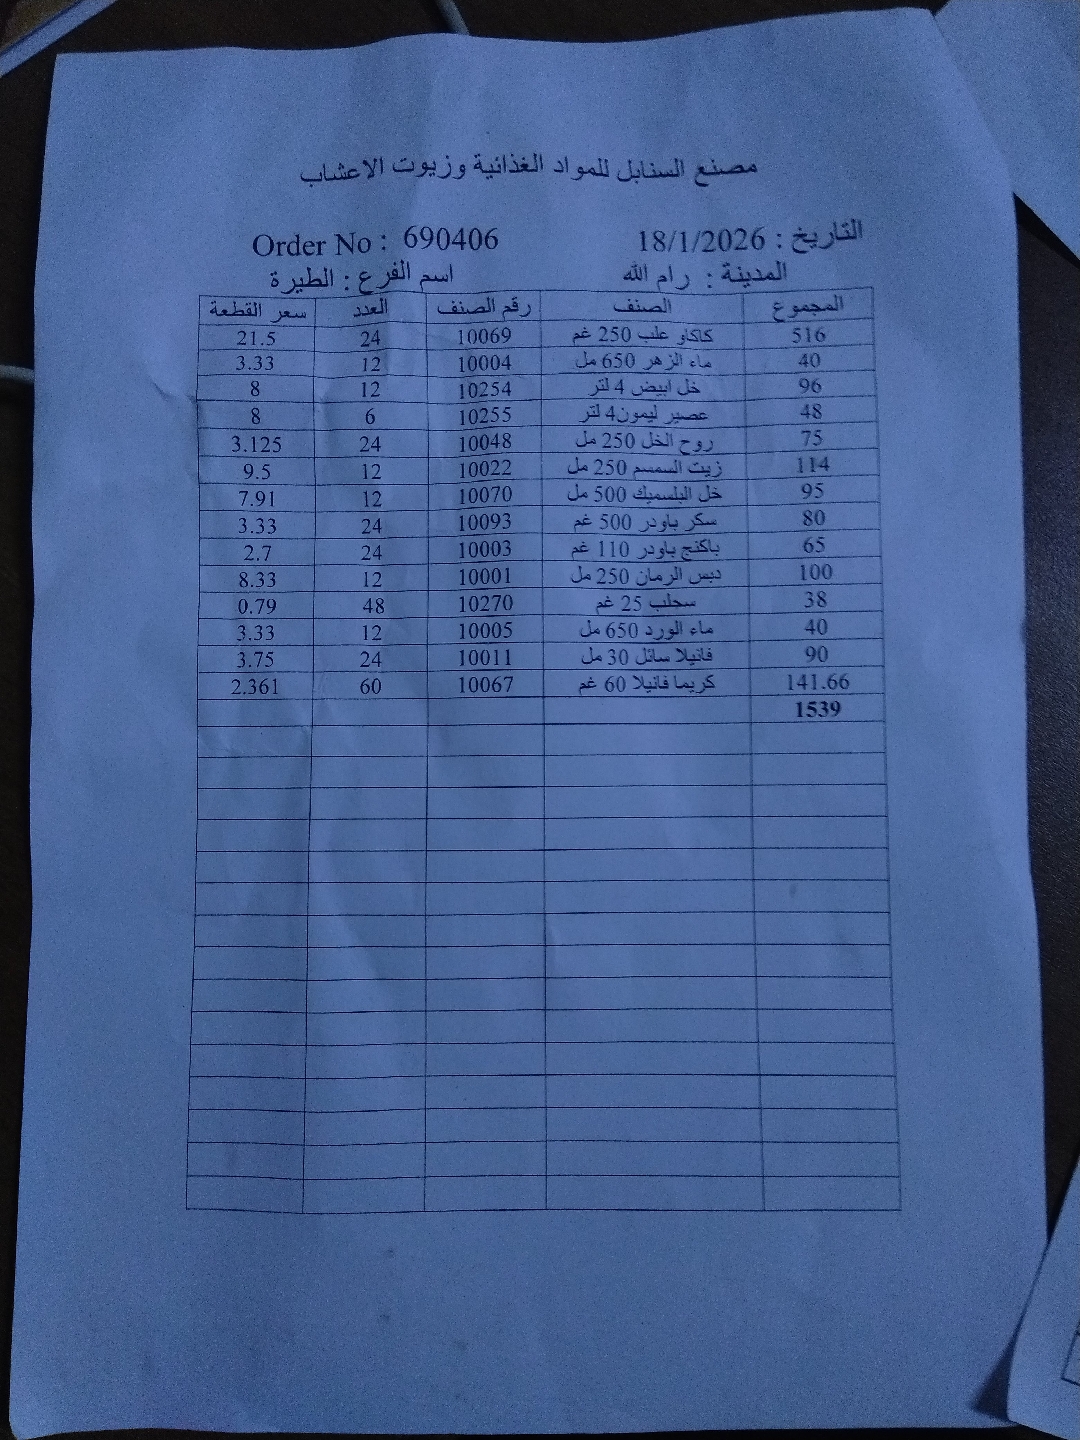 مصنع السنابل للمواد الغذائية وزيوت الاعشاب
التاريخ : 18/1/2026 Order No : 690406
المدينة : رام الله اسم الفرع : الطيرة
المجموع الصنف رقم الصنف العدد سعر القطعة
516 كاكاو علب 250 غم 10069 24 21.5
40 ماء الزهر 650 مل 10004 12 3.33
96 خل ابيض 4 لتر 10254 12 8
48 عصير ليمون4 لتر 10255 6 8
75 روح الخل 250 مل 10048 24 3.125
114 زيت السمسم 250 مل 10022 12 9.5
95 خل البلسميك 500 مل 10070 12 7.91
80 سكر باودر 500 غم 10093 24 3.33
65 باكنج باودر 110 غم 10003 24 2.7
100 دبس الرمان 250 مل 10001 12 8.33
38 سحلب 25 غم 10270 48 0.79
40 ماء الورد 650 مل 10005 12 3.33
90 فانيلا سائل 30 مل 10011 24 3.75
141.66 كريما فانيلا 60 غم 10067 60 2.361
1539